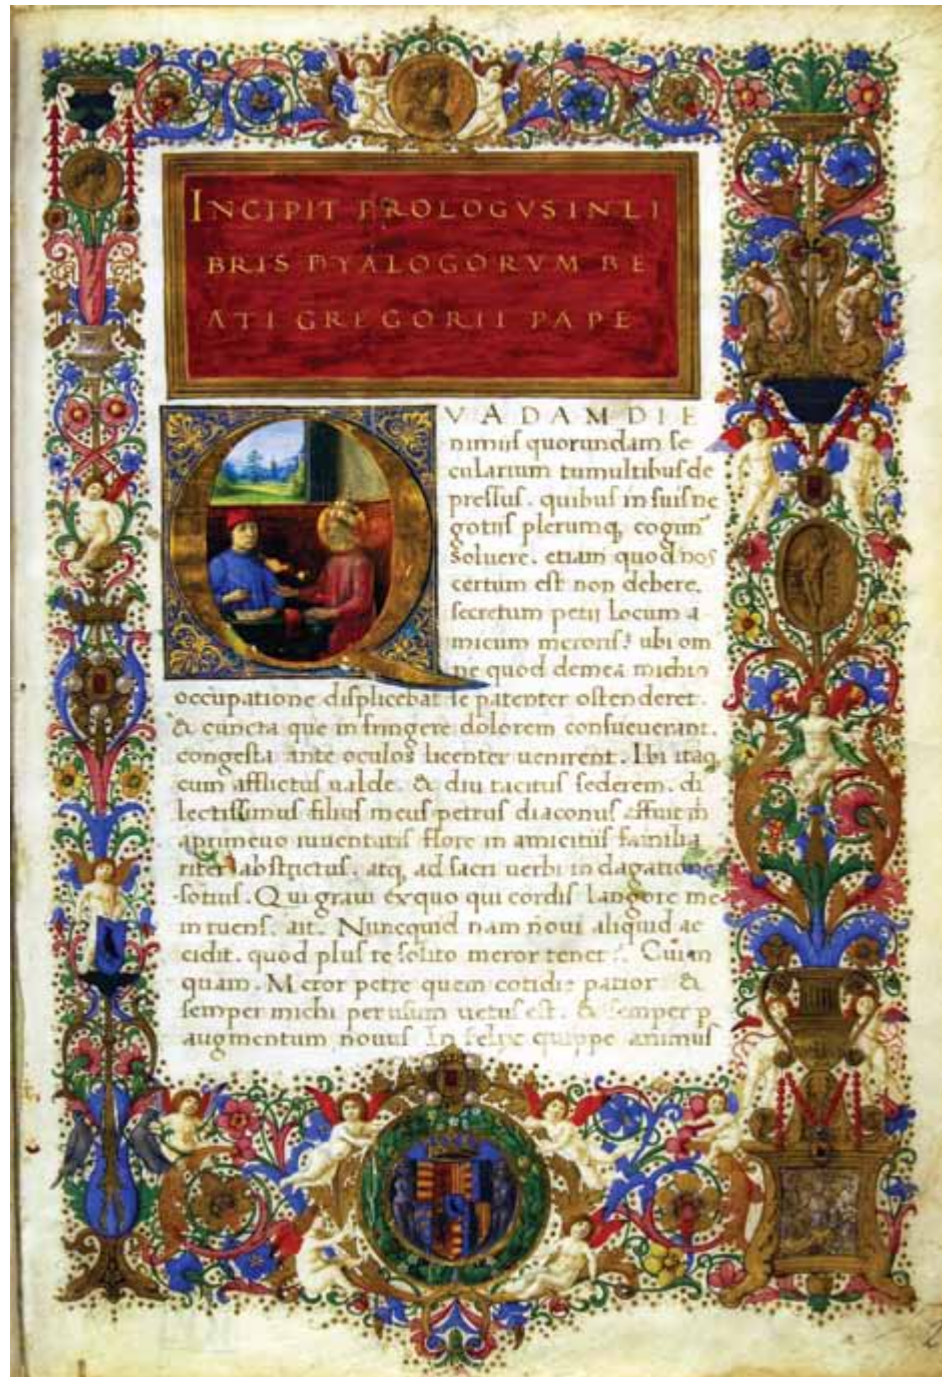 INCIPIT PROLOGVS IN LI
BRIS DYALOGORVM BE
ATI GREGORII PAPE
QVADAM DIE
nimiis quorundam se
cularium tumultibus de
pressus. quibus in suis ne
gotiis plerumq, cogim̃
soluere. etiam quod nos
certum est non debere.
secretum petii locum a
micum meroris: ubi om
ne quod de mea michi
occupatione displicebat se patenter ostenderet.
& cuncta que infringere dolorem consueuerant.
congesta ante oculos licenter uenirent. Ibi itaq,
cum afflictus ualde. & diu tacitus sederem. di
lectissimus filius meus petrus diaconus affuit m̃
a primeuo iuuentutis flore in amicitiis familia
riter abstrictus. atq, ad sacri uerbi indagationes
sotius. Qui graui exquo qui cordis langore me
inruens. ait. Nuncquid nam noui aliquid ac
cidit. quod plus te solito meror tenet: Cui in
quam. Meror petre quem cotidie patior &
semper michi per usum uetus est. & semper p
augmentum nouus In felix quippe animus